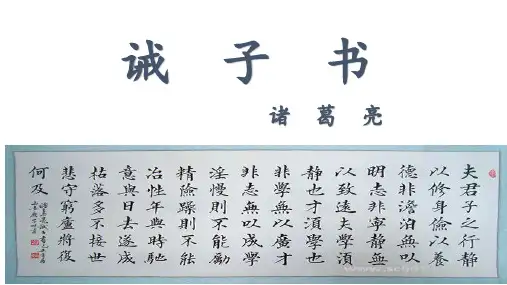 诫子书
诸葛亮
夫君子之行靜
以修身儉以養
德非澹泊無以
明志非寧靜無
以致遠夫學須
靜也才須學也
非學無以廣才
非志無以成學
淫慢則不能勵
精險躁則不能
冶性年與時馳
意與日去遂成
枯落多不接世
悲守窮廬將復
何及